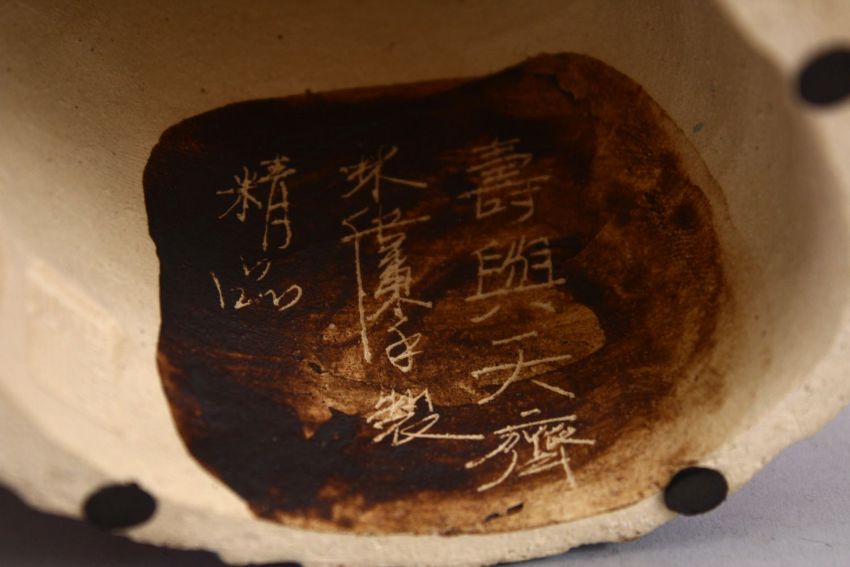 壽與天齊
林
製
精品